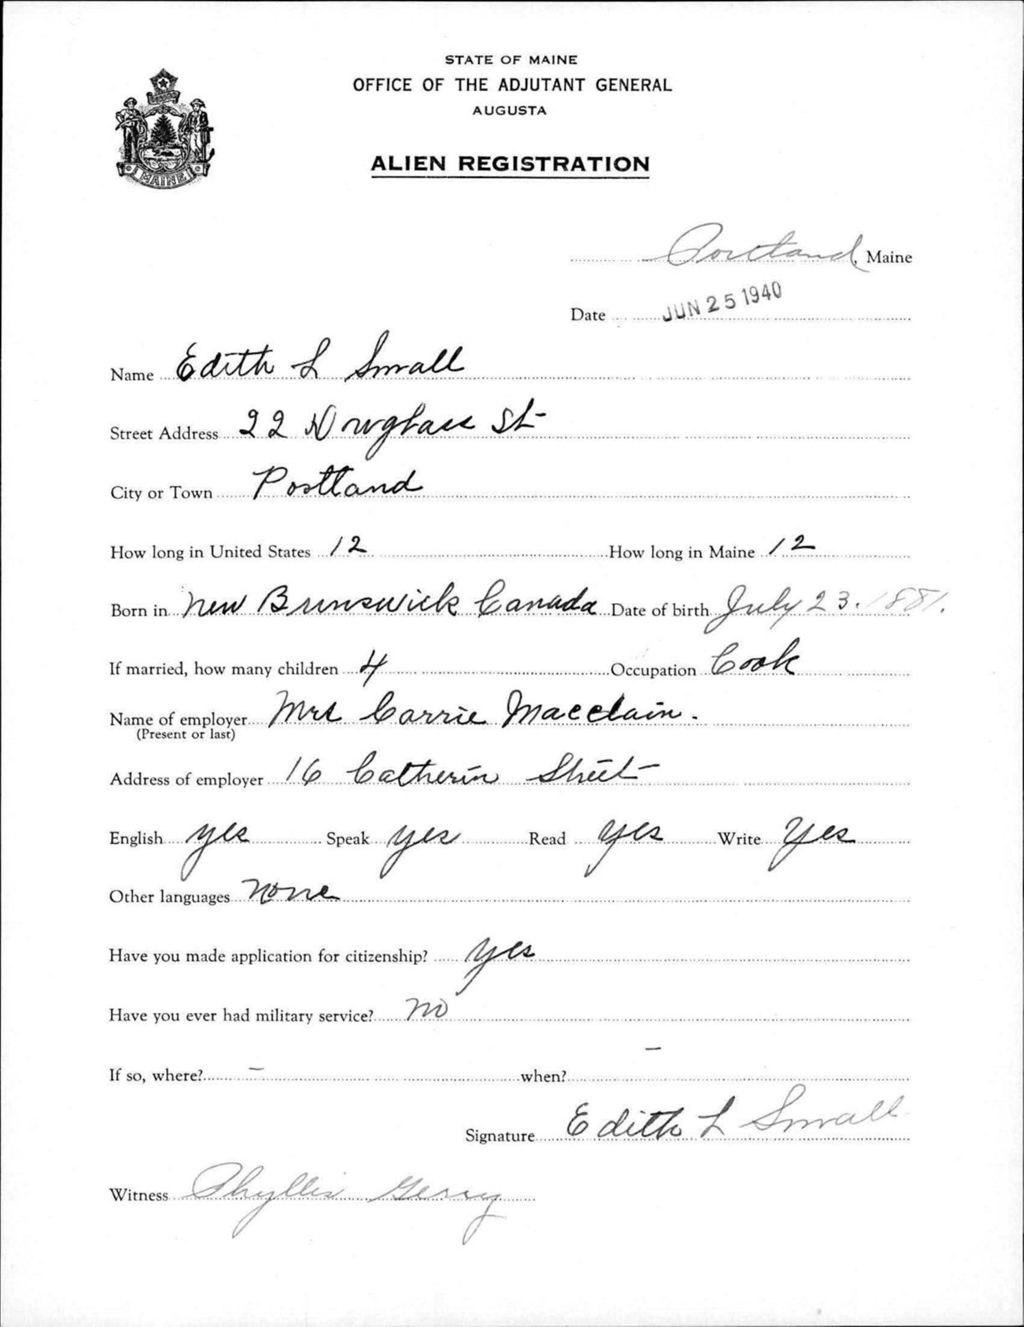 STATE OF MAINE
OFFICE OF THE ADJUTANT GENERAL
AUGUSTA
ALIEN REGISTRATION
MAINE
Portland, Maine
Date JUN 25 1940
Name Edith L Small
Street Address 22 Douglass St
City or Town Portland
How long in United States 12 How long in Maine 12
Born in New Brunswick Canada Date of birth July 23. 1881.
If married, how many children 4 Occupation Cook
Name of employer Mrs Carrie Macclain.
(Present or last)
Address of employer 16 Catherin Street
English yes Speak yes Read yes Write Yes
Other languages none
Have you made application for citizenship? yes
Have you ever had military service? no
If so, where? - when? -
Signature Edith L Small
Witness Phyllis Gerry